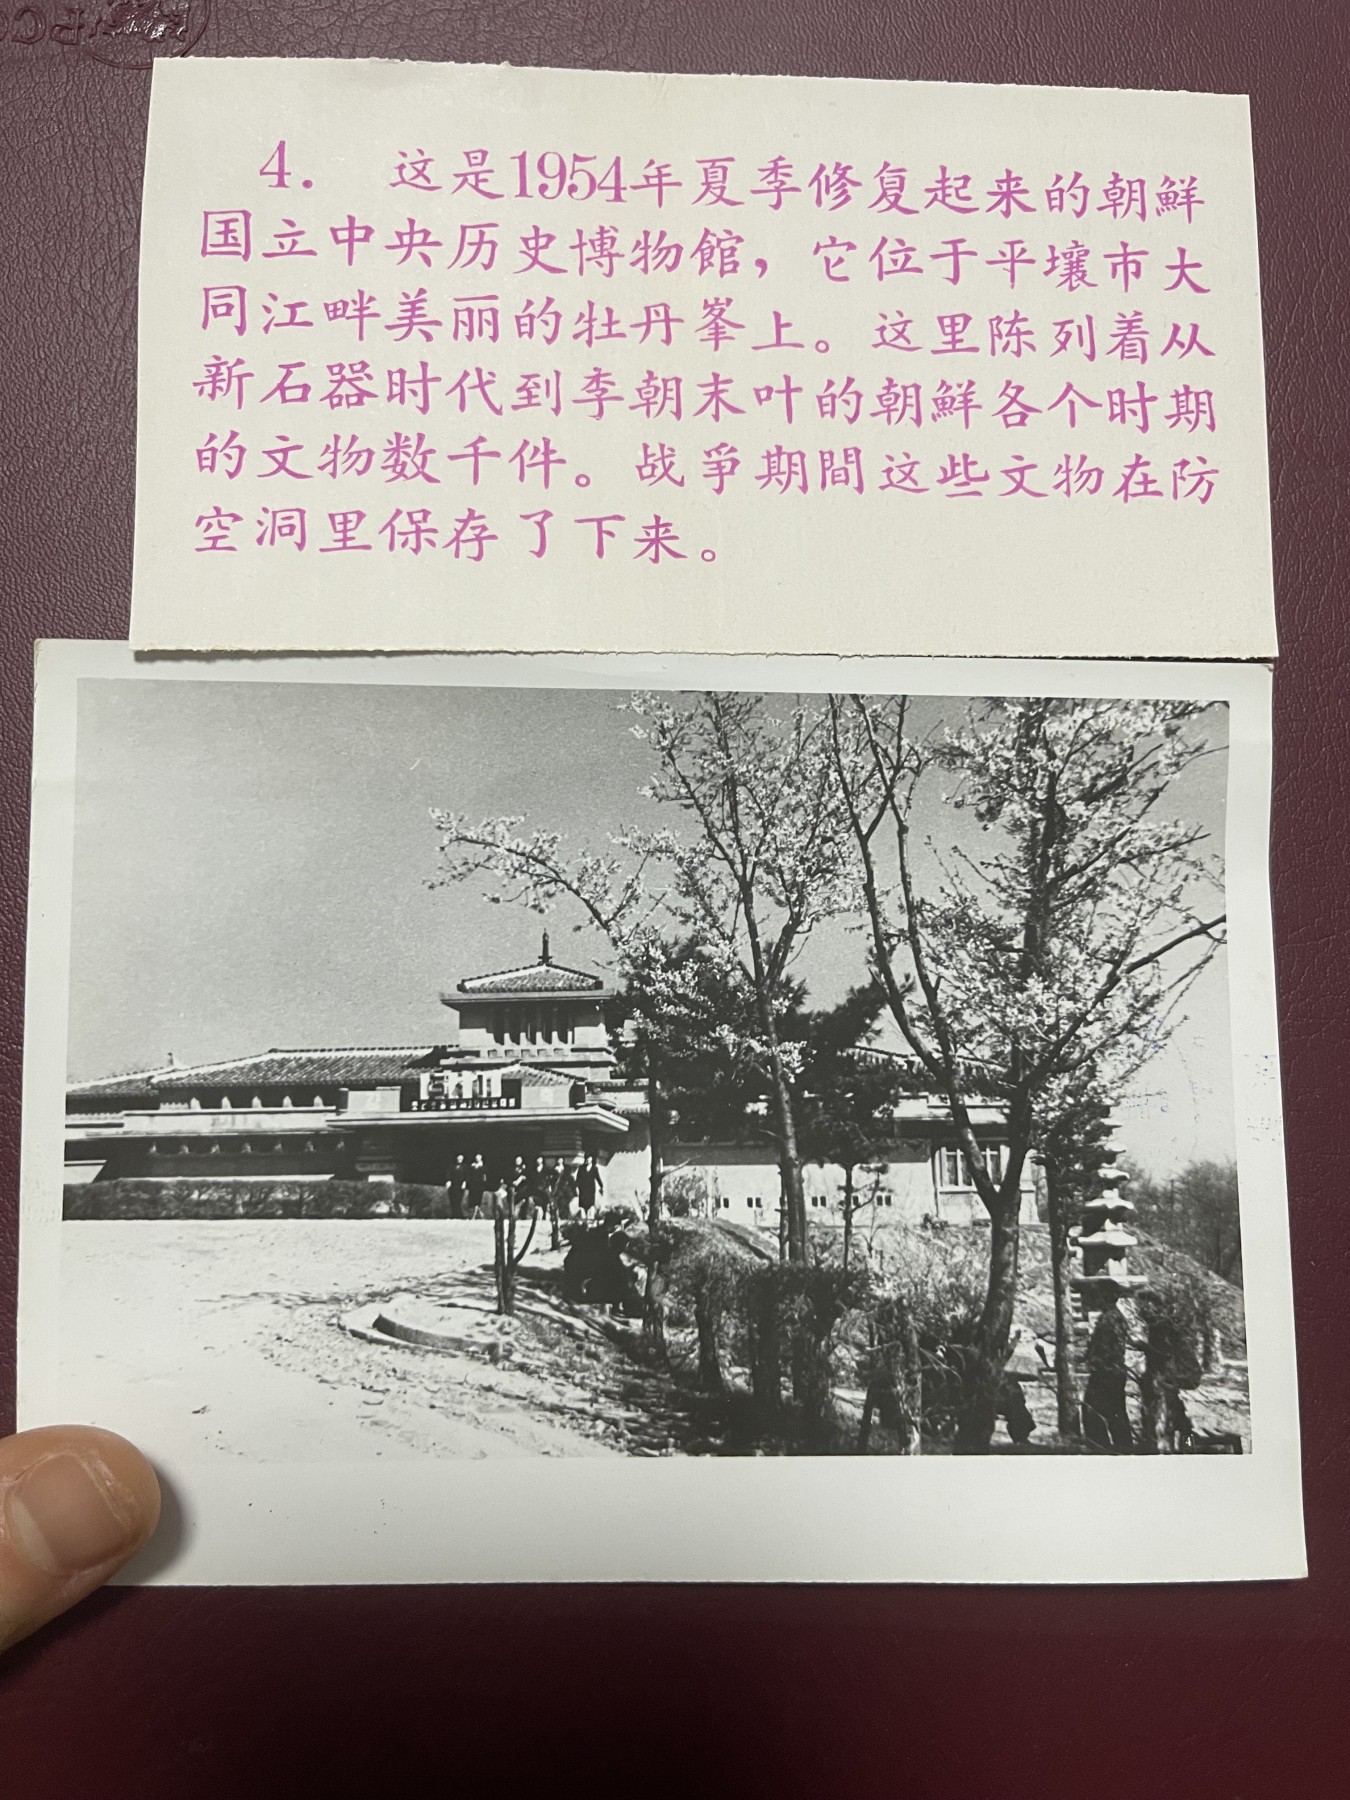 4. 这是1954年夏季修复起来的朝鲜
国立中央历史博物館，它位于平壤市大
同江畔美丽的牡丹峯上。这里陈列着从
新石器时代到李朝末叶的朝鲜各个时期
的文物数千件。战爭期間这些文物在防
空洞里保存了下来。
4